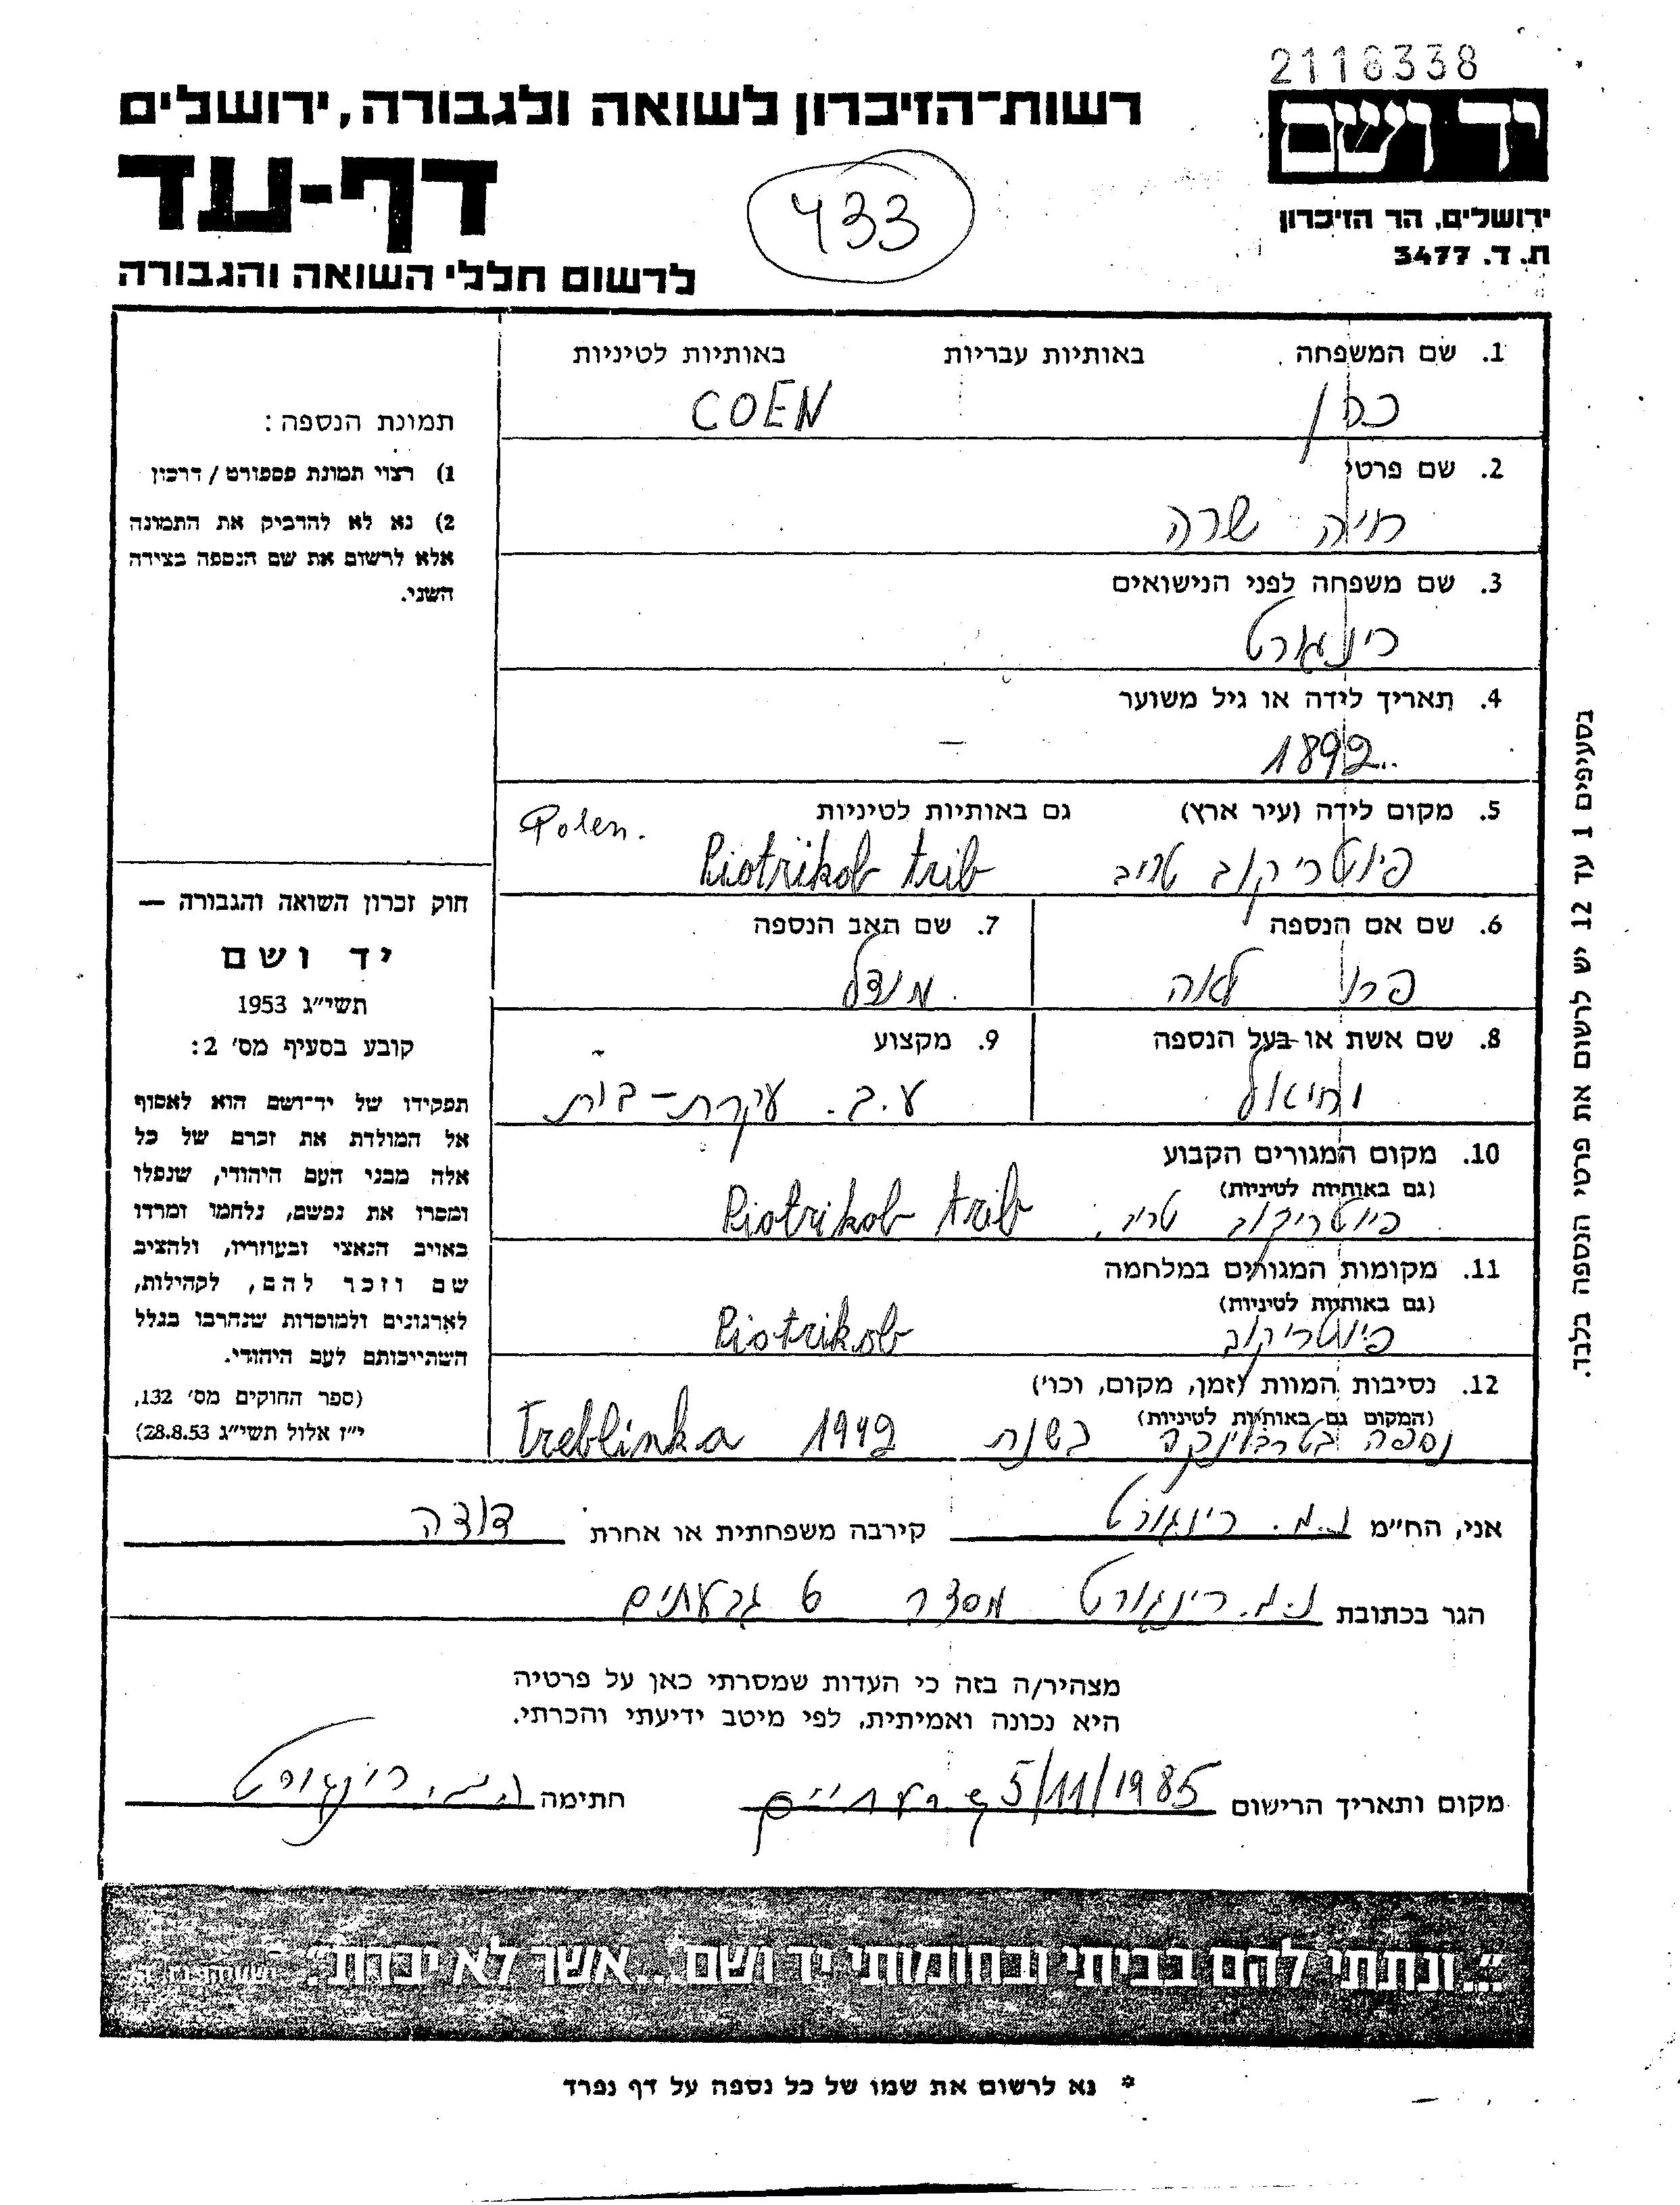 2118338
יד ושם
רשות־הזיכרון לשואה ולגבורה, ירושלים
דף-עד
433
ירושלים, הר הזיכרון
ת. ד. 3477
לרשום חללי השואה והגבורה
1. שם המשפחה באותיות עבריות באותיות לטיניות
כהן COEN
2. שם פרטי
חיה שרה
3. שם משפחה לפני הנישואים
רינגורט
4. תאריך לידה או גיל משוער
1892
5. מקום לידה (עיר ארץ) גם באותיות לטיניות
פיוטריקוב טריב Piotrikob trib Polen.
6. שם אם הנספה 7. שם האב הנספה
לאה מנדל
8. שם אשת או בעל הנספה 9. מקצוע
יחיאל ע.ב. עקרת-בית
10. מקום המגורים הקבוע
(גם באותיות לטיניות)
פיוטריקוב טריב Piotrikob trib
11. מקומות המגורים במלחמה
(גם באותיות לטיניות)
פיוטריקוב Piotrikob
12. נסיבות המוות (זמן, מקום, וכו')
(המקום גם באותיות לטיניות)
נספה בטרבלינקה בשנת 1942 Treblinka
תמונת הנספה:
1) רצוי תמונת פספורט / דרכון
2) נא לא להדביק את התמונה
אלא לרשום את שם הנספה בצידה
השני.
חוק זכרון השואה והגבורה —
יד ושם
תשי"ג 1953
קובע בסעיף מס' 2:
תפקידו של יד־ושם הוא לאסוף
אל המולדת את זכרם של כל
אלה מבני העם היהודי, שנפלו
ומסרו את נפשם, נלחמו ומרדו
באויב הנאצי ובעוזריו, ולהציב
שם וזכר להם, לקהילות,
לארגונים ולמוסדות שנחרבו בגלל
השתייכותם לעם היהודי.
(ספר החוקים מס' 132,
י"ז אלול תשי"ג 28.8.53)
בסעיפים 1 עד 12 יש לרשום את פרטי הנספה בלבד.
אני, החי"מ נ.מ. רינגורט קירבה משפחתית או אחרת דודה
הגר בכתובת נ.מ. רינגורט מסדה 6 גבעתים
מצהיר/ה בזה כי העדות שמסרתי כאן על פרטיה
היא נכונה ואמיתית, לפי מיטב ידיעתי והכרתי.
מקום ותאריך הרישום 5/11/1985 גבעתיים חתימה נ.מ. רינגורט
"...ונתתי להם בביתי ובחומותי יד ושם...אשר לא יכרת". ישעיהו נו, ה
* נא לרשום את שמו של כל נספה על דף נפרד